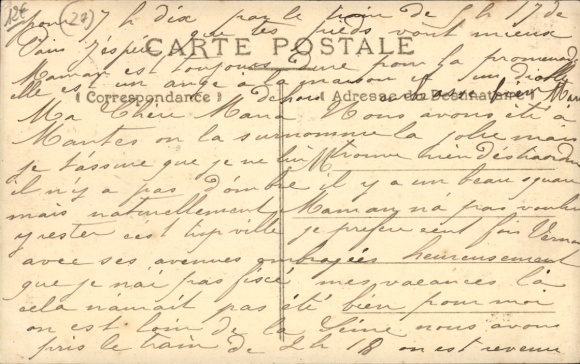 12€
(27)
pour 7 h dix par le train de 5 h 17 de
Paris j'espère que tes pieds vont mieux
CARTE POSTALE
Maman est toujours dure pour la promenade
elle est un ange à la maison et un
( Correspondance )
( Adresse du Destinataire )
dehors
Ma Chère Mana Nous avons été à
Mantes on la surnomme la jolie mais
je t'assure que je ne lui trouve rien d'extraordin
il n'y a pas d'ombre il y a un beau square
mais naturellement Maman n'a pas voulu
y rester c'est trop ville je préfère cent fois Verno
avec ses avenues ombragées heureusement
que je n'ai pas fixé mes vacances là
cela n'aurait pas été bien pour moi
on est loin de la Seine nous avons
pris le train de 2 h 18 on est revenu